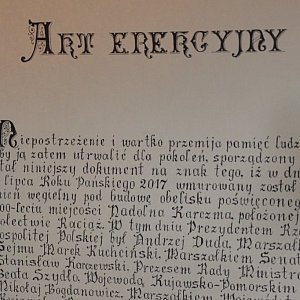 Akt erekcyjny
Niepostrzeżenie i wartko przemija pamięć ludz
by ją zatem utrwalić dla pokoleń, sporządzony
tał niniejszy dokument na znak tego, iż w dn
lipca Roku Pańskiego 2017, wmurowany został
ień węgielny pod budowę obelisku poświęconego
00-leciu miejscości Nadolna Karczma, położonej
ołectwie Raciąż. W tym dniu Prezydentem Rz
ospolitej Polskiej był Andrzej Duda, Marszał
Sejmu Marek Kuchciński, Marszałkiem Senat
Stanisław Karczewski, Prezesem Rady Ministr
Beata Szydło, Wojewodą Kujawsko-Pomorskim
Mikołaj Bogdanowicz, Marszałkiem Wojew